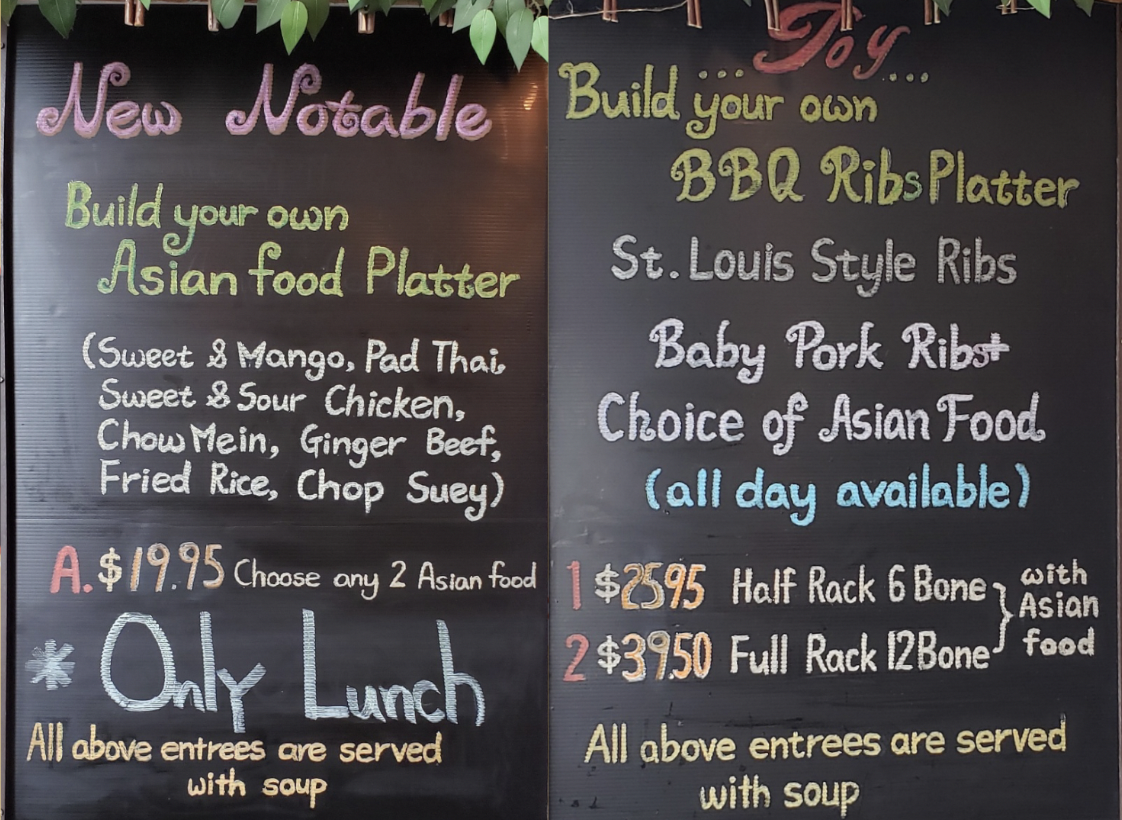 New Notable
Build your own
Asian food Platter
(Sweet & Mango, Pad Thai,
Sweet & Sour Chicken,
Chow Mein, Ginger Beef,
Fried Rice, Chop Suey)
A. $19.95 Choose any 2 Asian food
* Only Lunch
All above entrees are served
with soup
Joy
Build ... your own ...
BBQ Ribs Platter
St. Louis Style Ribs
Baby Pork Ribs+
Choice of Asian Food
(all day available)
1 $25.95 Half Rack 6 Bone
2 $39.50 Full Rack 12 Bone
with
Asian
food
All above entrees are served
with soup